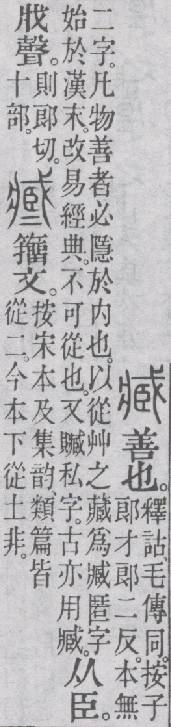 臧善也。釋詁、毛傳同。按子
郎才郎二反。本無
二字。凡物善者必隱於内也。以從艸之藏爲臧匿字
始於漢末。改易經典。不可從也。又贓私字。古亦用臧。从臣。
戕聲。則郎切。
十部。籒文。按宋本及集韵、類篇皆
從二。今本下從土非。